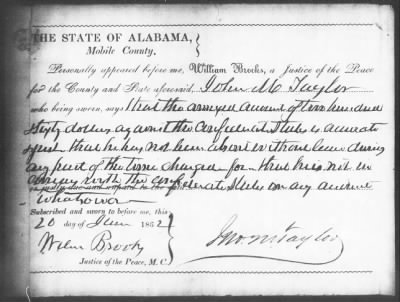 THE STATE OF ALABAMA,
Mobile County.
Personally appeared before me, William Brooks, a Justice of the Peace
for the County and State aforesaid John M. Taylor
who being sworn, says that the annexed account of two hundred
sixty dollars against the Confederate States is accurate
& just that he has not been absent without leave during
any part of the time charged for that he is not in
arrears with the Confederate States on any account
whatsoever
Subscribed and sworn to before me, this
20 day of June 1862
Wm Brooks
Jno. M. Taylor
Justice of the Peace, M. C.